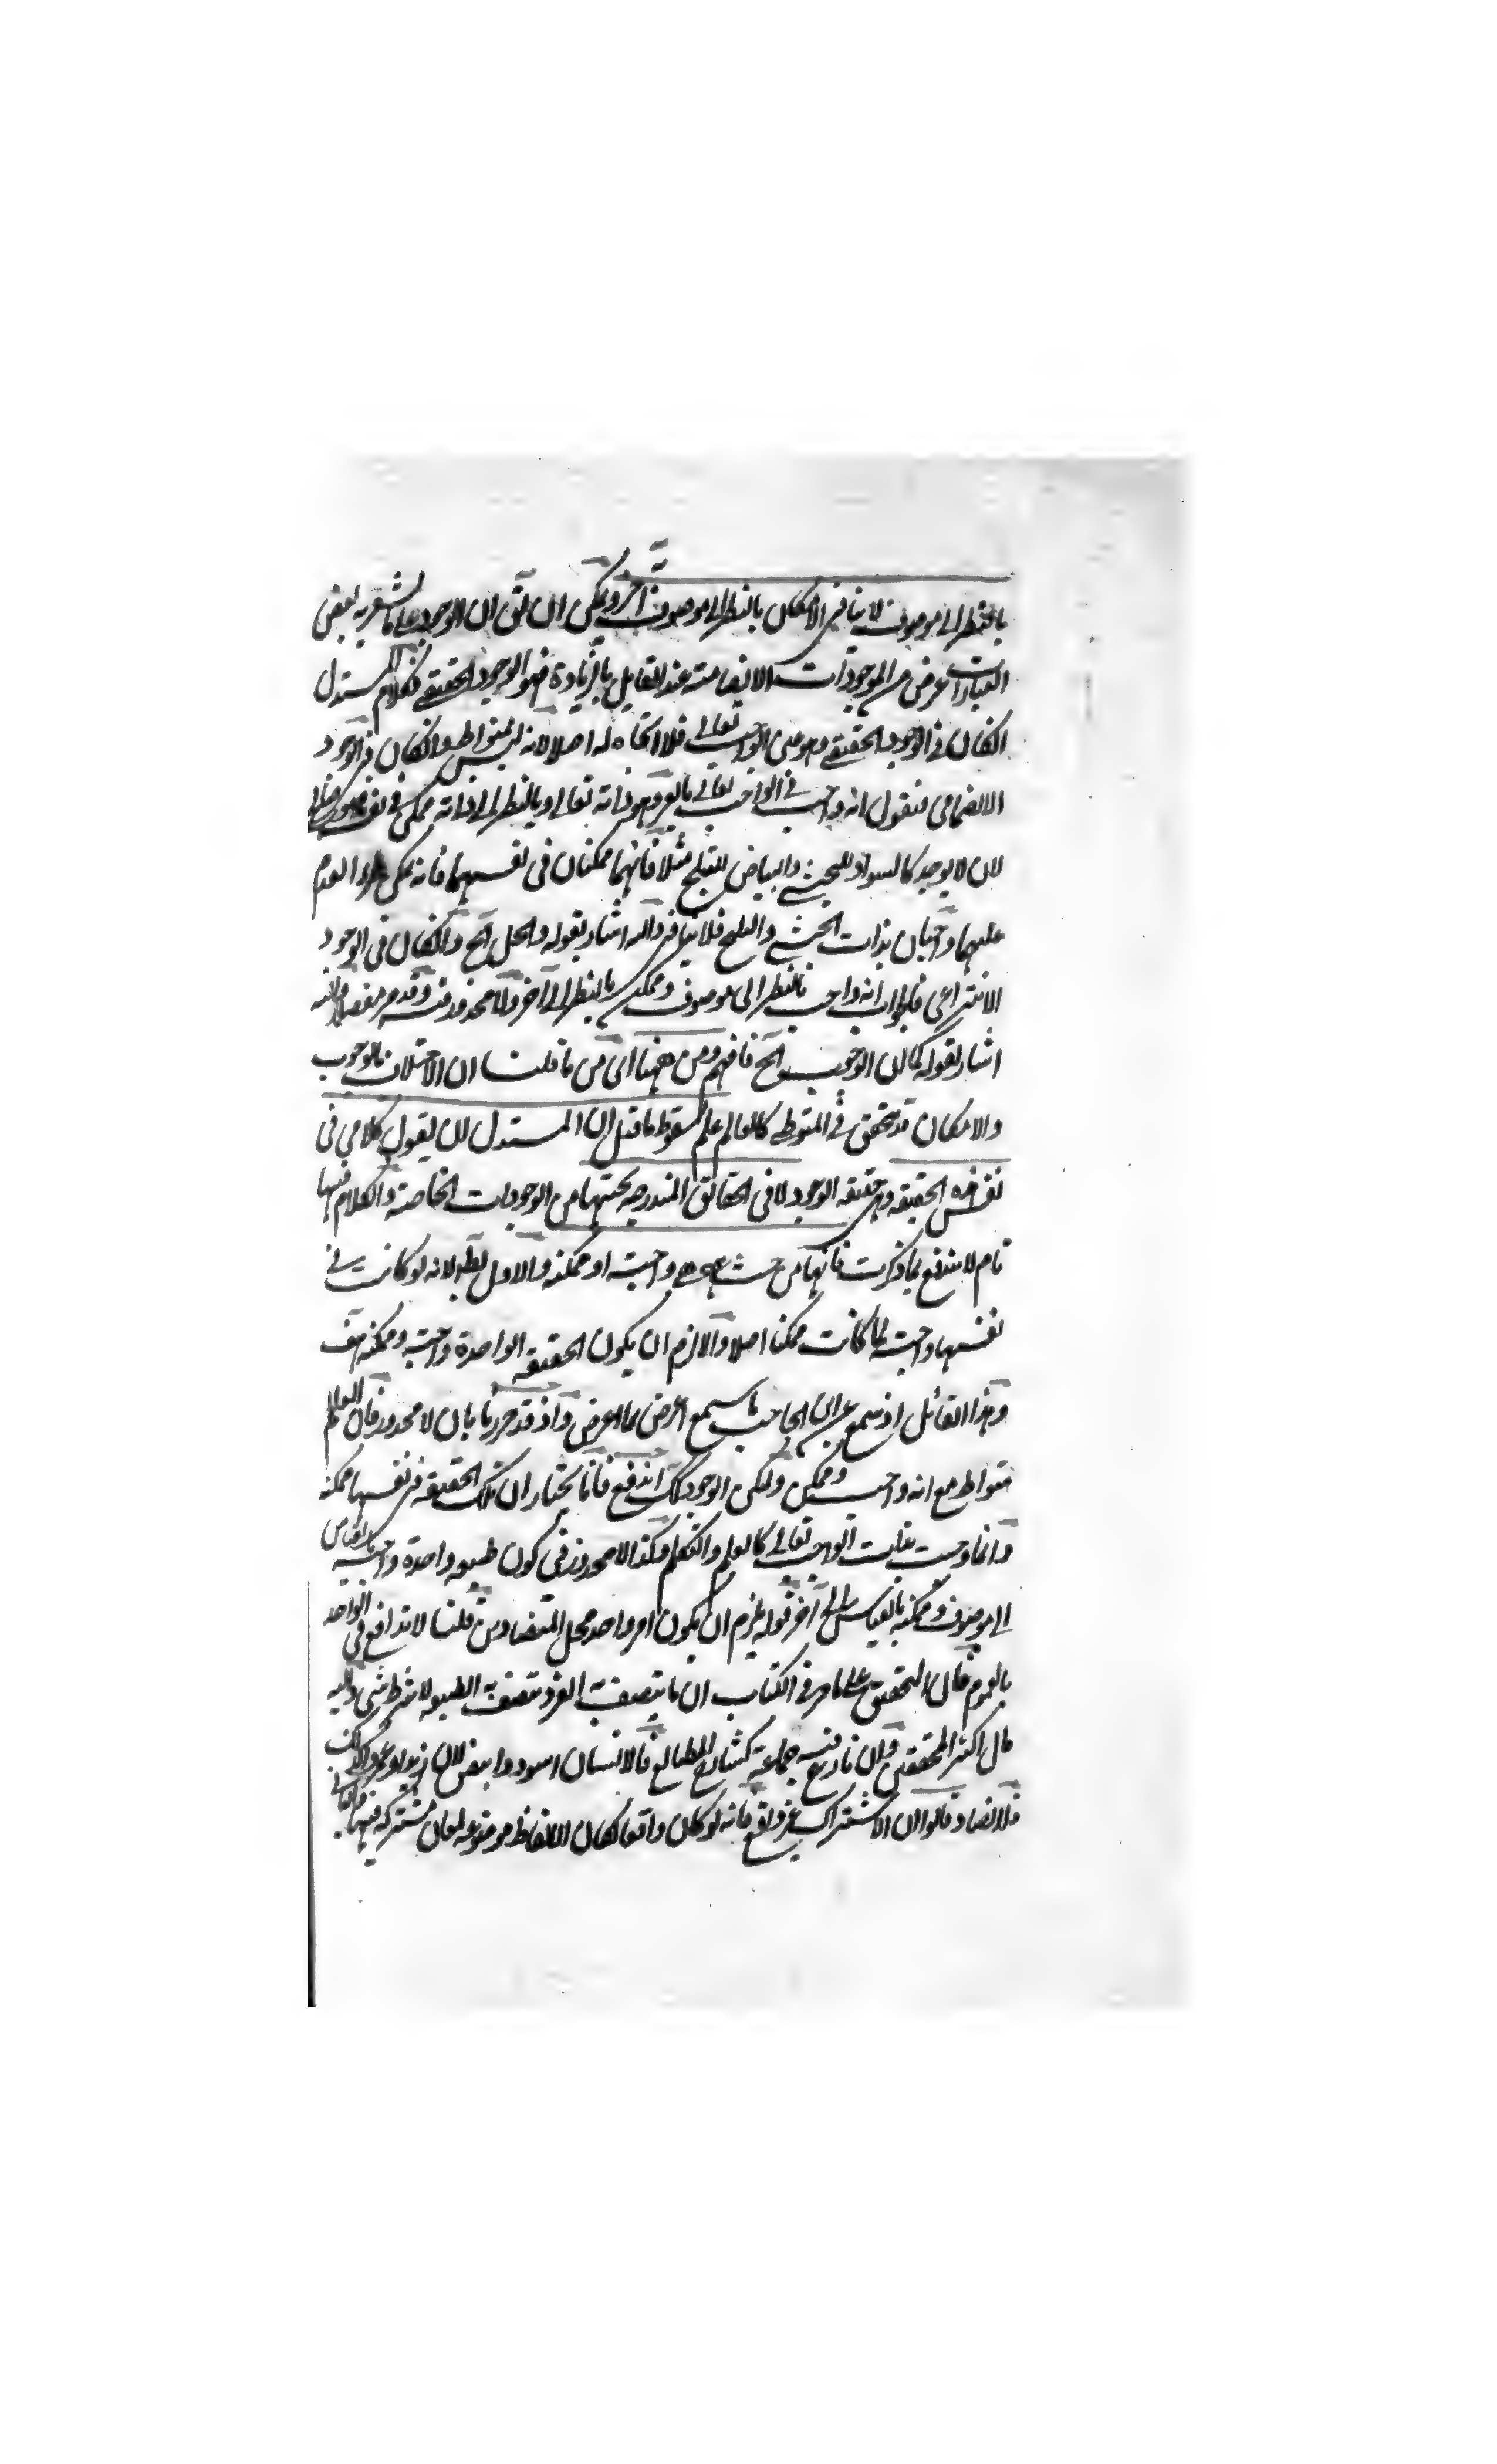 بالنظر الى موصوف لا ينافى الامكان بالنظر الى موصوف آخر ويمكن ان يق ان الوجود على ما يشعر به بعض
العبارات عرض من الموجودات الانضمامية عند القايل بالزيادة فهو الوجود الحقيقى فكلام المستدل
انكان فى الوجود الحقيقى وهو عين الواجب تعالى فلا اتجاه له اصلا لانه ليس بمتواط وانكان فى الوجود
الانضمامى فنقول انه واجب فى الواجب تعالى بالغير وهو ذاته تعالى وبالنظر الى ذاته ممكن فى نفسه
لان لا يوجد كالسواد للحبشى والبياض للثلج مثلا فانهما ممكنان فى نفسهما فانه يمكن العدم
عليهما واجبان بذات الحبشى والثلج فلا تنافى واليه اشار بقوله والحل آلخ وانكان فى الوجود
الانتزاعى فالجواب انه واجب بالنظر الى موصوف وممكن بالنظر الى آخر ولا محذور فيه وقد مر مفصلا واليه
اشار بقوله كما ان الوجوب آلخ فافهم ومن ههنا اى من ما قلنا ان الاختلاف بالوجوب
والامكان قد يتحقق فى المتواطى كالعالم علم سقوط ما قيل ان المستدل لان يقول كلامى فى
نفس هذه الحقيقه وهى حقيقه الوجود لا فى الحقائق المندرجه تحتها من الوجودات الخاصة والكلام فيها
تام لا يندفع بما ذكرت فانها من حيث هى هى واجبة او ممكنه والاول بط لانه لو كانت فى
نفسها واجبة لما كانت ممكنا اصلا والا لزم ان يكون الحقيقه الواحدة واجبة وممكنه هف
وهذا القائل اذ سمع عن ابن الحاجب ما سمع اعرض عما اعرض واذ قد حررنا بان لا محذور فان العالم
متواط مع انه واجب وممكن وليكن الوجود كك اندفع فانا نختار ان تلك الحقيقه فى نفسها ممكنه
وانما وجبت بذات الواجب تعالى كالعلم والتكلم وكذا لا محذور فى كون طبيعه واحدة واجبة بالقياس
الى موصوف وممكنه بالقياس الى آخر قوله يلزم ان يكون امر واحد محل المتضادين قلنا لا تدافع فى الواحد
بالعموم فان التحقيق على ما مر فى الكتاب ان ما يتصف به الفرد يتصف به الطبيعه لا بشرط شى واليه
مال اكثر المحققين وان نازع فيه جماعة كشارح المطالع فالانسان اسود وابيض لان زيدا وعمروا كذلك
فلا تضاد قالوا ان الاشتراك غير واقع فانه لو كان واقعا لكان الالفاظ موضوعه لمعان مشتركه فيها